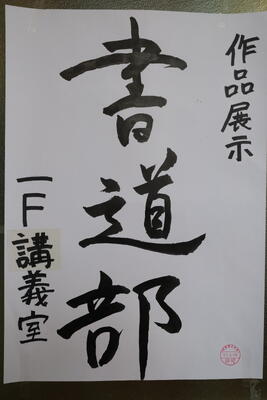 作品展示
書道部
一F講義室